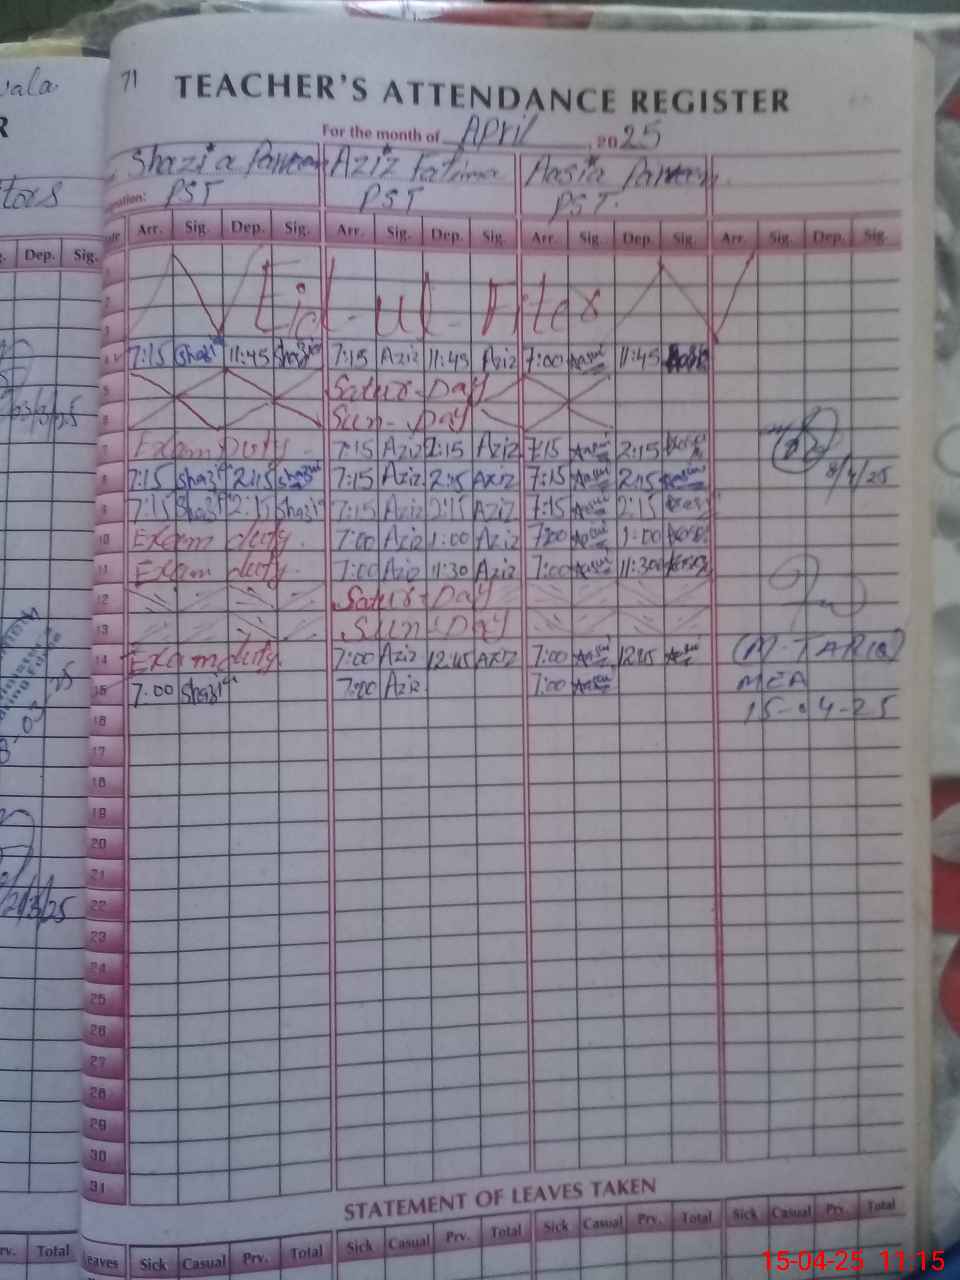 vala
R
tors
Dep. Sig.
71 TEACHER'S ATTENDANCE REGISTER
For the month of April, 2025
Shazia Parveen Aziz Fatima Aasia Parveen
PST PST PST.
Arr. Sig. Dep. Sig. Arr. Sig. Dep. Sig. Arr. Sig. Dep. Sig. Arr. Sig. Dep. Sig.
1
2 Eid-ul-Fiter
3
4 7:15 Shazia 11:45 Shazia 7:15 Aziz 11:45 Aziz 7:00 Aasia 11:45 Aasia
5 Satur-Day
6 Sun-Day
7 Exam Duty. 7:15 Aziz 2:15 Aziz 7:15 Aasia 2:15
8 7:15 Shazia 2:15 Shazia 7:15 Aziz 2:15 Aziz 7:15 Aasia 2:15
8/4/25
9 7:15 Shazia 2:15 Shazia 7:15 Aziz 2:15 Aziz 7:15 Aasia 2:15
10 Exam duty. 7:00 Aziz 1:00 Aziz 7:00 Aasia 1:00
11 Exam duty. 7:00 Aziz 11:30 Aziz 7:00 Aasia 11:30
12 Satur-Day
13 Sun-Day
14 Exam duty. 7:00 Aziz 12:15 Aziz 7:00 Aasia 12:15 (M. TARIQ)
15 7:00 Shazia 7:00 Aziz 7:00 Aasia MEA
16 15-04-25
17
18
19
20
21
22
23
24
25
26
27
28
29
30
31
STATEMENT OF LEAVES TAKEN
rv. Total
Leaves Sick Casual Prv. Total Sick Casual Prv. Total Sick Casual Prv. Total Sick Casual Prv. Total
15-04-25 11:15